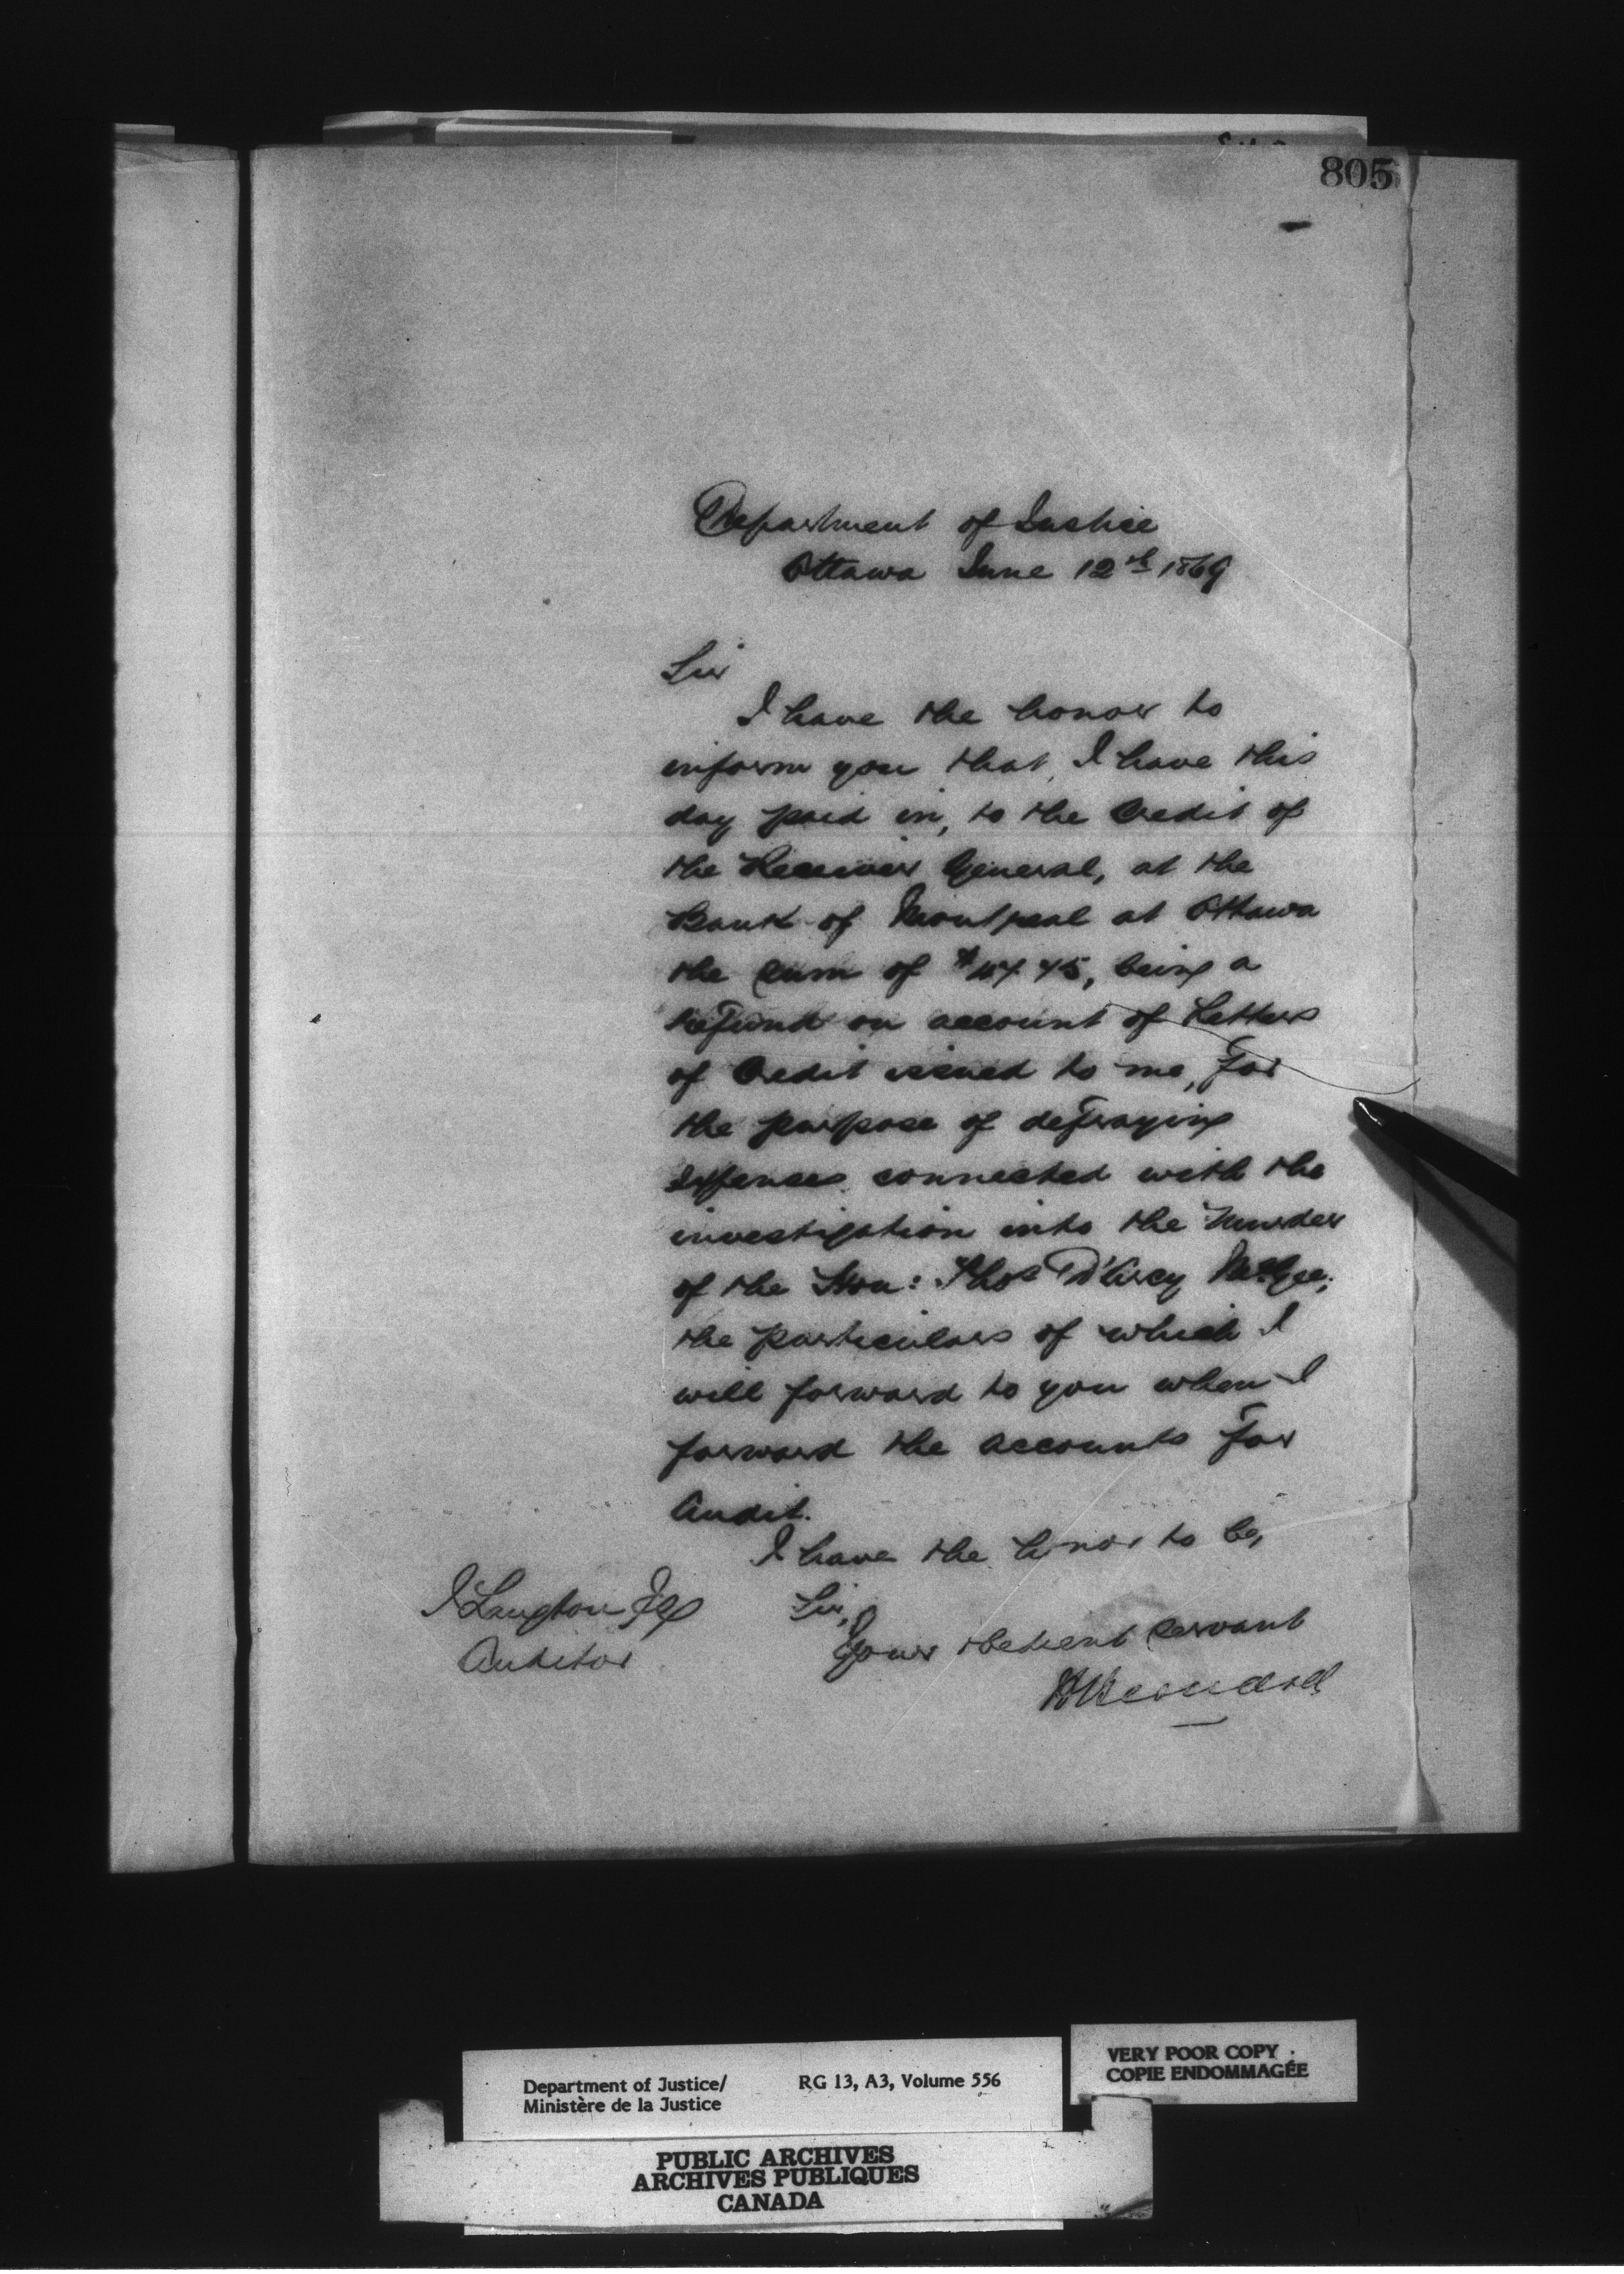 805
Department of Justice
Ottawa June 12th 1869
Sir
I have the honor to
inform you that, I have this
day paid in, to the Credit of
the Receiver General, at the
Bank of Montreal at Ottawa
the sum of being a
refund on account of Letters
of Credit issued to me, for
the purpose of defraying
expenses connected with the
investigation into the Murder
of the Hon: Thos D'Arcy McGee,
the particulars of which I
will forward to you when I
forward the accounts for
Audit.
I have the honor to be,
Sir,
Your obedient servant
J Langton Esq
Auditor
Department of Justice/
Ministère de la Justice
RG 13, A3, Volume 556
VERY POOR COPY
COPIE ENDOMMAGÉE
PUBLIC ARCHIVES
ARCHIVES PUBLIQUES
CANADA